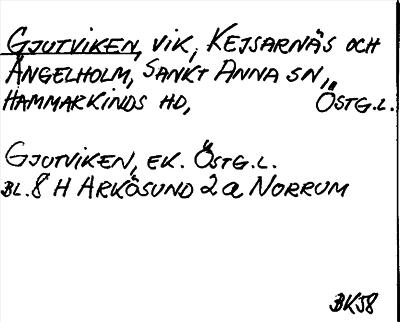 GJUTVIKEN, VIK, KEJSARNÄS OCH
ÄNGELHOLM, SANKT ANNA SN,
HAMMARKINDS HD, ÖSTG.L.
GJUTVIKEN, EK. ÖSTG.L.
BL. 8 H ARKÖSUND 2a NORRUM
BK58